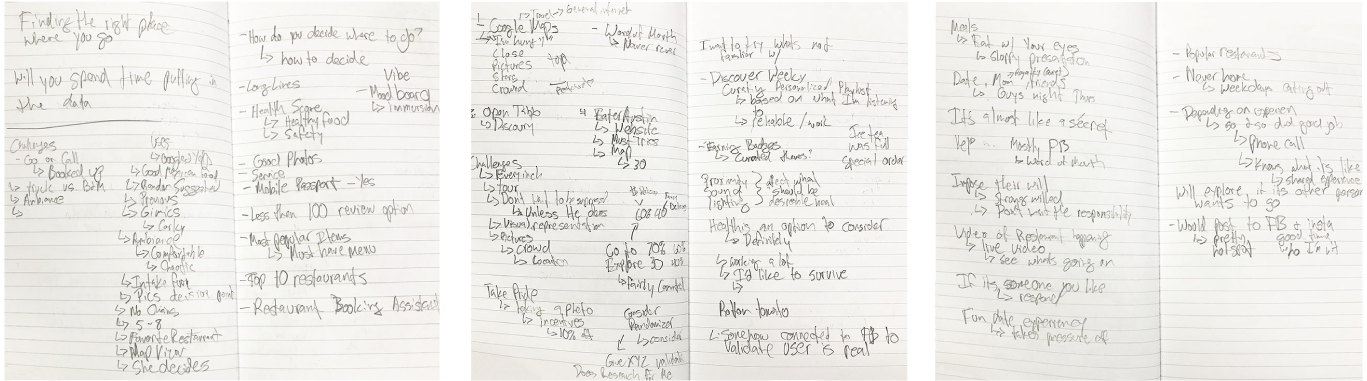 Finding the right place
where you go
Will you spend time putting in
the data
Challenges
- Go on Call
↳ Booked up
↳ Ambiance
Uses
↳ Random Suggested
↳ Previous
↳ Gimics
↳ Corky
↳ Ambiance
↳ Comfortable
↳ Chaotic
↳ Intake from
↳ Pics decision point
↳ No Chains
↳ 5-8
↳ Favorite Restaurant
↳ Map View
↳ She decides
- How do you decide where to go?
↳ how to decide
- Long Lines
- Health Score
↳ Healthy food
↳ Safety
Vibe
- Mood board
↳ Immersion
- Good Photos
- Service
- Mobile Passport - Yes
- Less then 100 review option
- Most popular Items
↳ Must have menu
- Top 10 restaurants
- Restaurant Booking Assistant
↳ Travel → General internet
1 - Google Maps
↳ I'm hungry
close
pictures
stars
Crowd
top
- Word of Mouth
↳ Never rever
Open Table
↳ Discovery
4 Eater Austin
↳ Website
↳ Must Tries
↳ Map
↳ 30
Challenges
↳ Every inch
↳ tour
↳ Don't want to be surprised
↳ Unless He does
↳ Visual representation
↳ Pictures
↳ Crowd
↳ Location
60% 40
Go to 70% 60%
Explore 30 40%
↳ Fairly Correct
Take Pride
↳ taking a photo
↳ Incentives
↳ 10%
Consider
Randomized
↳ consider
Give XYZ validate
Does Research for Me
I want to try whats not
familiar w/
- Discover Weekly
Curetly Personalized Playlist
↳ based on what I'm listening
to
↳ reliable / work
- Earning Badges
↳ Curated themes?
Ice tea
was full
special order
Proximity
Sound
lighting
affect what
should be
desireable meal
Health is an option to consider
↳ Definitely
↳ working a lot
↳ I'd like to survive
Rotten tomato
↳ Somehow connected to FB to
Validate User is real
Meals
↳ Eat w/ Your eyes
↳ Sloppy presentation
Date, Mom, friends
↳ Guys night
It's almost like a secret
Yelp... Mostly FB
↳ Word of Mouth
Impose their will
↳ Strong willed
↳ Don't want the responsibility
Video of Restaurant happening
↳ live video
↳ see whats going on
If its someone you like
↳ respond
Fun date experiency
↳ takes pressure off
- Popular Restaurants
- Never home
↳ Weekdays eating out
- Depending on experien
↳ so & so did good job
↳ Phone call
↳ Knows what its like
↳ shared experience
Will explore, if its other person
wants to go
- Would post to FB & insta
↳ pretty
hot spot
good time
↳ I'm lit